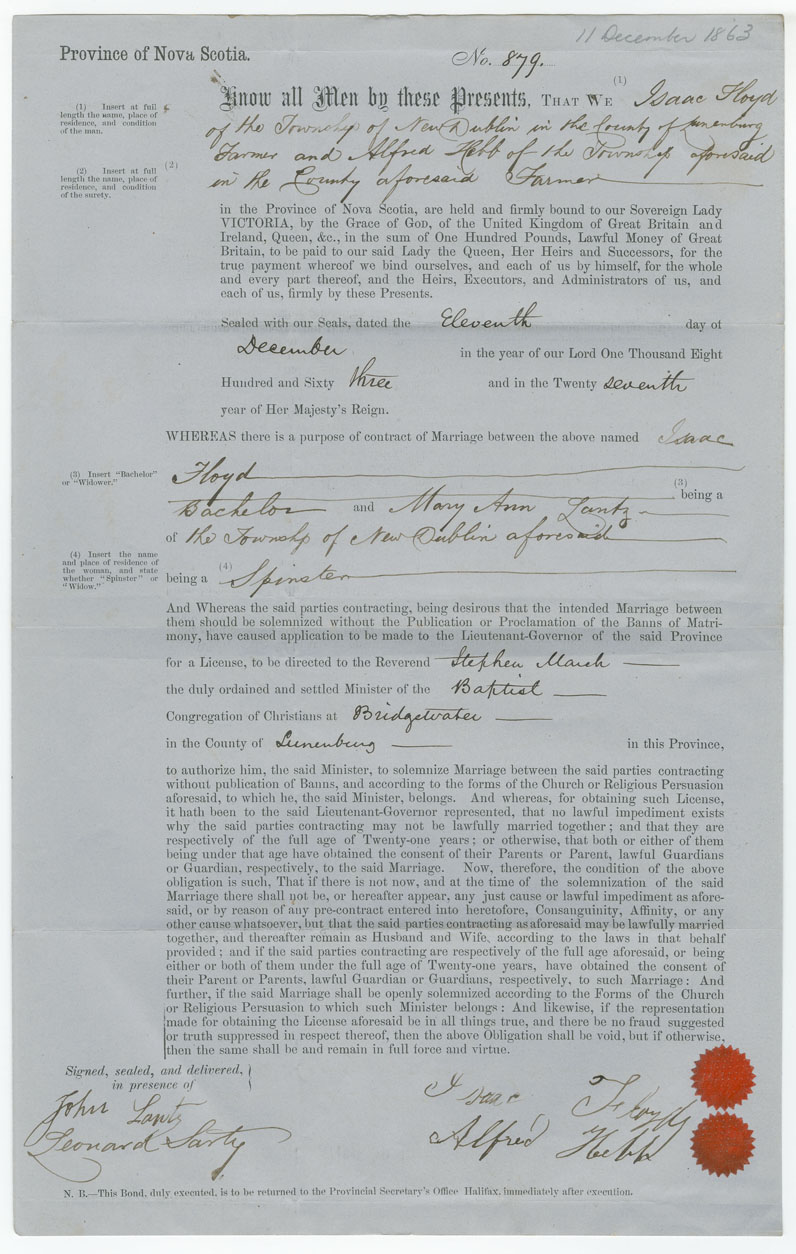 11 December 1863
Province of Nova Scotia.
No. 879.
(1) Insert at full
length the name, place of
residence, and condition
of the man.
Know all Men by these Presents, THAT WE (1) Isaac Floyd
of the Township of New Dublin in the County of Lunenburg
(2) Insert at full
length the name, place of
residence, and condition
of the surety.
(2)
Farmer and Alfred Hebb of the Township aforesaid
in the County aforesaid Farmer
in the Province of Nova Scotia, are held and firmly bound to our Sovereign Lady
VICTORIA, by the Grace of GOD, of the United Kingdom of Great Britain and
Ireland, Queen, &c., in the sum of One Hundred Pounds, Lawful Money of Great
Britain, to be paid to our said Lady the Queen, Her Heirs and Successors, for the
true payment whereof we bind ourselves, and each of us by himself, for the whole
and every part thereof, and the Heirs, Executors, and Administrators of us, and
each of us, firmly by these Presents.
Sealed with our Seals, dated the Eleventh day of
December in the year of our Lord One Thousand Eight
Hundred and Sixty three and in the Twenty seventh
year of Her Majesty's Reign.
WHEREAS there is a purpose of contract of Marriage between the above named Isaac
(3) Insert "Bachelor"
or "Widower."
Floyd
(3) being a
Bachelor and Mary Ann Lantz
of the Township of New Dublin aforesaid
(4) Insert the name
and place of residence of
the woman, and state
whether "Spinster" or
"Widow."
being a (4) Spinster
And Whereas the said parties contracting, being desirous that the intended Marriage between
them should be solemnized without the Publication or Proclamation of the Banns of Matri-
mony, have caused application to be made to the Lieutenant-Governor of the said Province
for a License, to be directed to the Reverend Stephen March
the duly ordained and settled Minister of the Baptist
Congregation of Christians at Bridgewater
in the County of Lunenburg in this Province,
to authorize him, the said Minister, to solemnize Marriage between the said parties contracting
without publication of Banns, and according to the forms of the Church or Religious Persuasion
aforesaid, to which he, the said Minister, belongs. And whereas, for obtaining such License,
it hath been to the said Lieutenant-Governor represented, that no lawful impediment exists
why the said parties contracting may not be lawfully married together; and that they are
respectively of the full age of Twenty-one years; or otherwise, that both or either of them
being under that age have obtained the consent of their Parents or Parent, lawful Guardians
or Guardian, respectively, to the said Marriage. Now, therefore, the condition of the above
obligation is such, That if there is not now, and at the time of the solemnization of the said
Marriage there shall not be, or hereafter appear, any just cause or lawful impediment as afore-
said, or by reason of any pre-contract entered into heretofore, Consanguinity, Affinity, or any
other cause whatsoever, but that the said parties contracting as aforesaid may be lawfully married
together, and thereafter remain as Husband and Wife, according to the laws in that behalf
provided; and if the said parties contracting are respectively of the full age aforesaid, or being
either or both of them under the full age of Twenty-one years, have obtained the consent of
their Parent or Parents, lawful Guardian or Guardians, respectively, to such Marriage: And
further, if the said Marriage shall be openly solemnized according to the Forms of the Church
or Religious Persuasion to which such Minister belongs: And likewise, if the representation
made for obtaining the License aforesaid be in all things true, and there be no fraud suggested
or truth suppressed in respect thereof, then the above Obligation shall be void, but if otherwise,
then the same shall be and remain in full force and virtue.
Signed, sealed, and delivered,
in presence of
John Lantz
Leonard Sarty
Isaac Floyd
Alfred Hebb
N. B.—This Bond, duly executed, is to be returned to the Provincial Secretary's Office Halifax, immediately after execution.